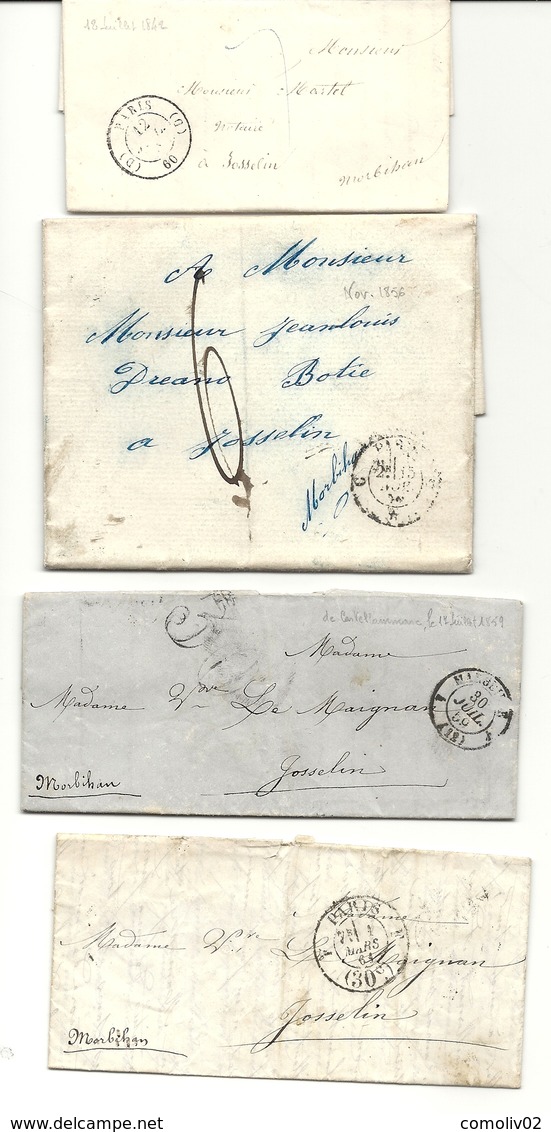 12 Juillet 1842
7
Monsieur
Monsieur Martel
Notaire
à Josselin
Morbihan
PARIS (C)
(D) 60
12
A Monsieur
Nov. 1856
Monsieur Jeanlouis
Dreano Botie
a Josselin
Morbihan
15
de Castellammare, le 12 Juillet 1859
Madame
Madame Vve Le Maignan
Josselin
Morbihan
30
JUIL.
59
Madame
Madame Vve Le Maignan
Josselin
Morbihan
PARIS
MARS
(30c)
Copyright : comoliv02